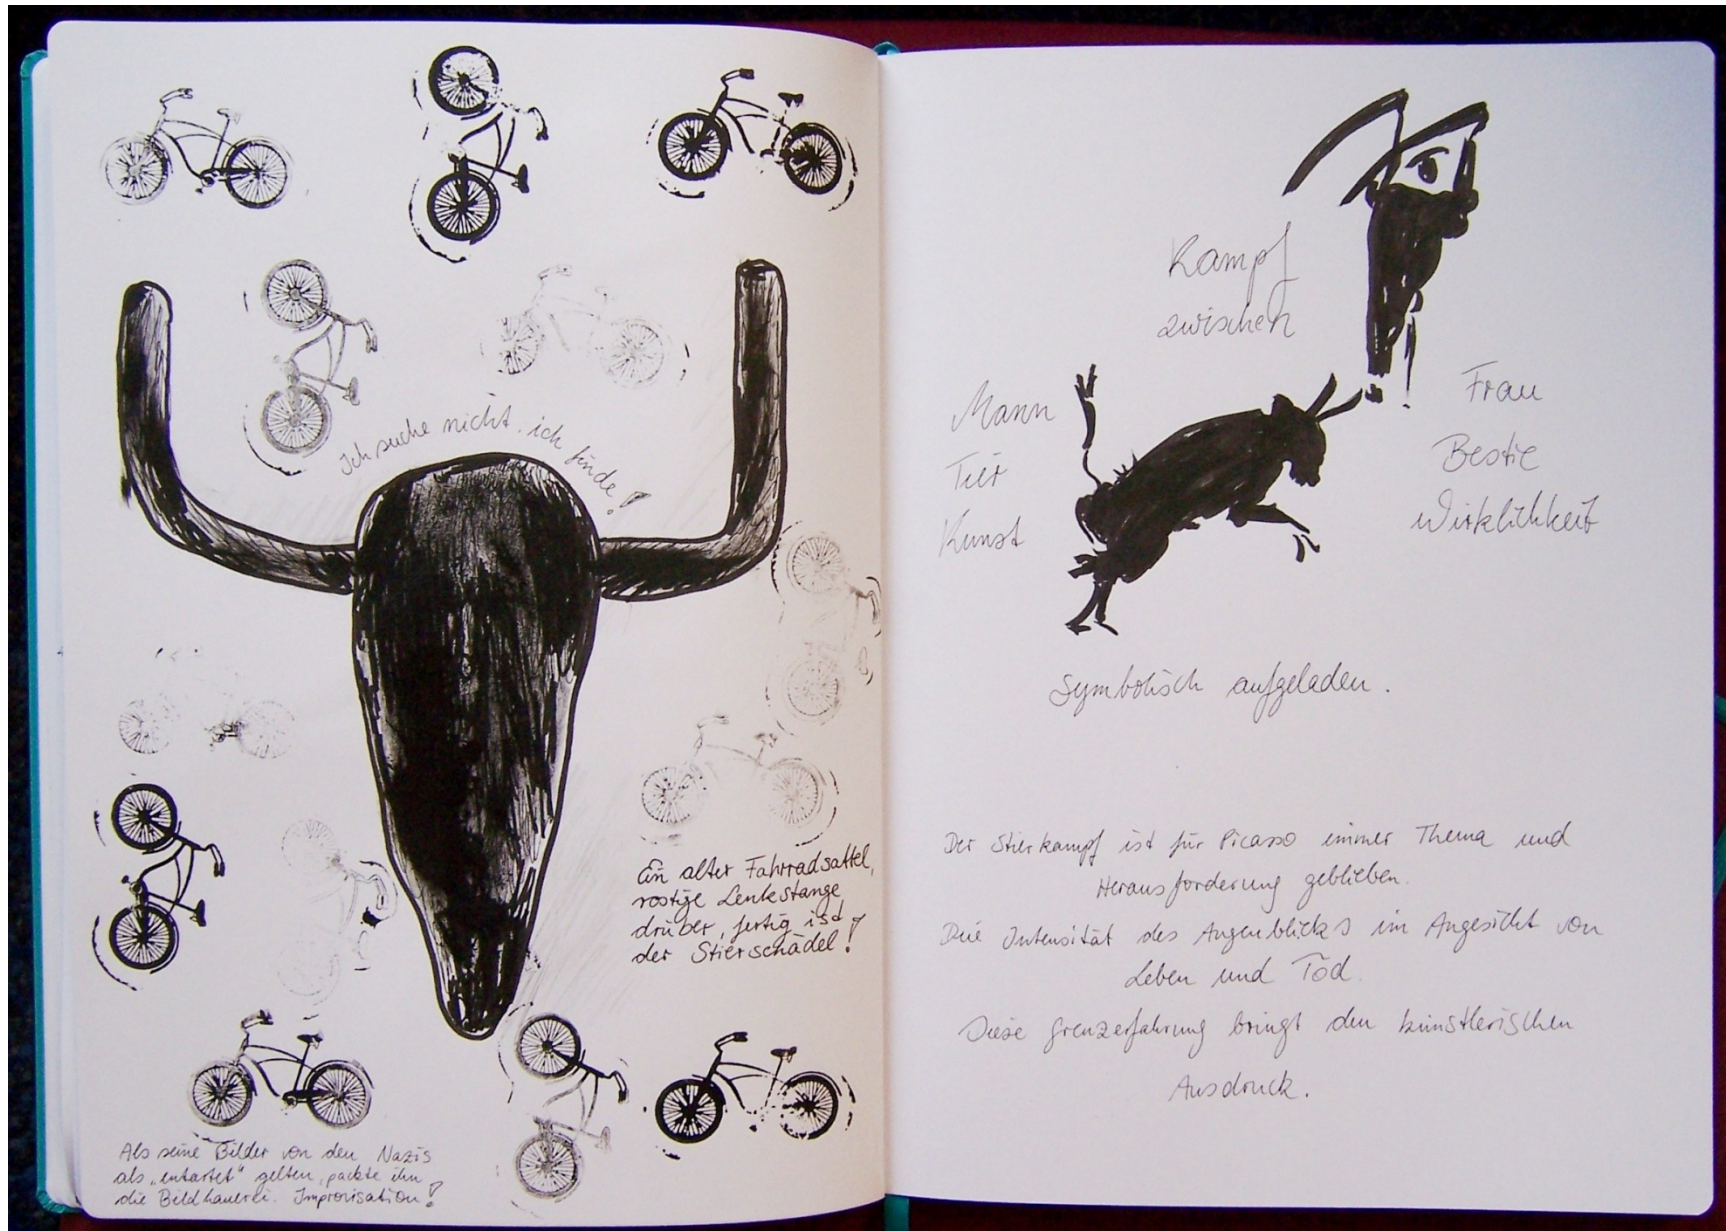 Ich suche nicht, ich finde!
Ein alter Fahrradsattel,
rostige Lenkstange
drüber, fertig ist
der Stierschädel!
Als seine Bilder von den Nazis
als „entartet“ gelten, packte ihn
die Bildhauerei. Improvisation!
Kampf
zwischen
Mann Frau
Tier Bestie
Kunst Wirklichkeit
Symbolisch aufgeladen.
Der Stierkampf ist für Picasso immer Thema und
Herausforderung geblieben.
Die Intensität des Augenblicks im Angesicht von
Leben und Tod.
Diese Grenzerfahrung bringt den künstlerischen
Ausdruck.